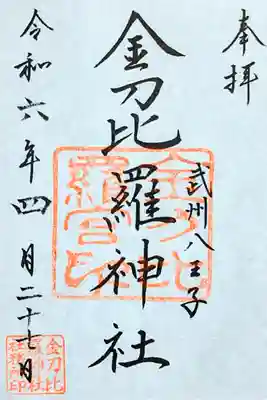 奉拝
武州八王子
金刀比羅神社
令和六年四月二十七日
金刀比
羅宮印
金刀比